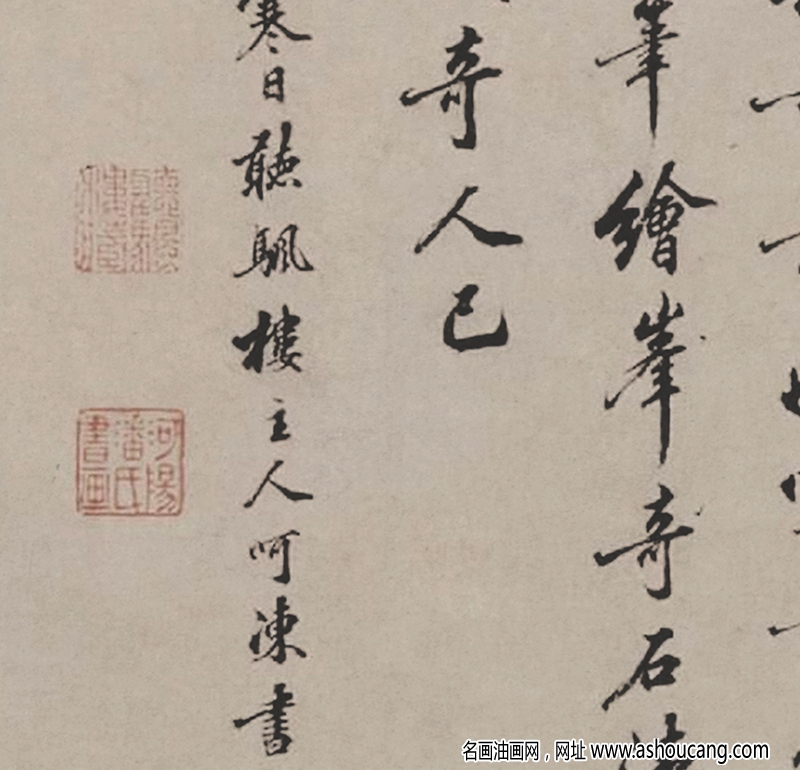 筆繪峯奇石
奇人已
寒日聽颿樓主人呵凍書
河陽潘氏書画
名画油画网，网址 www.ashoucang.com